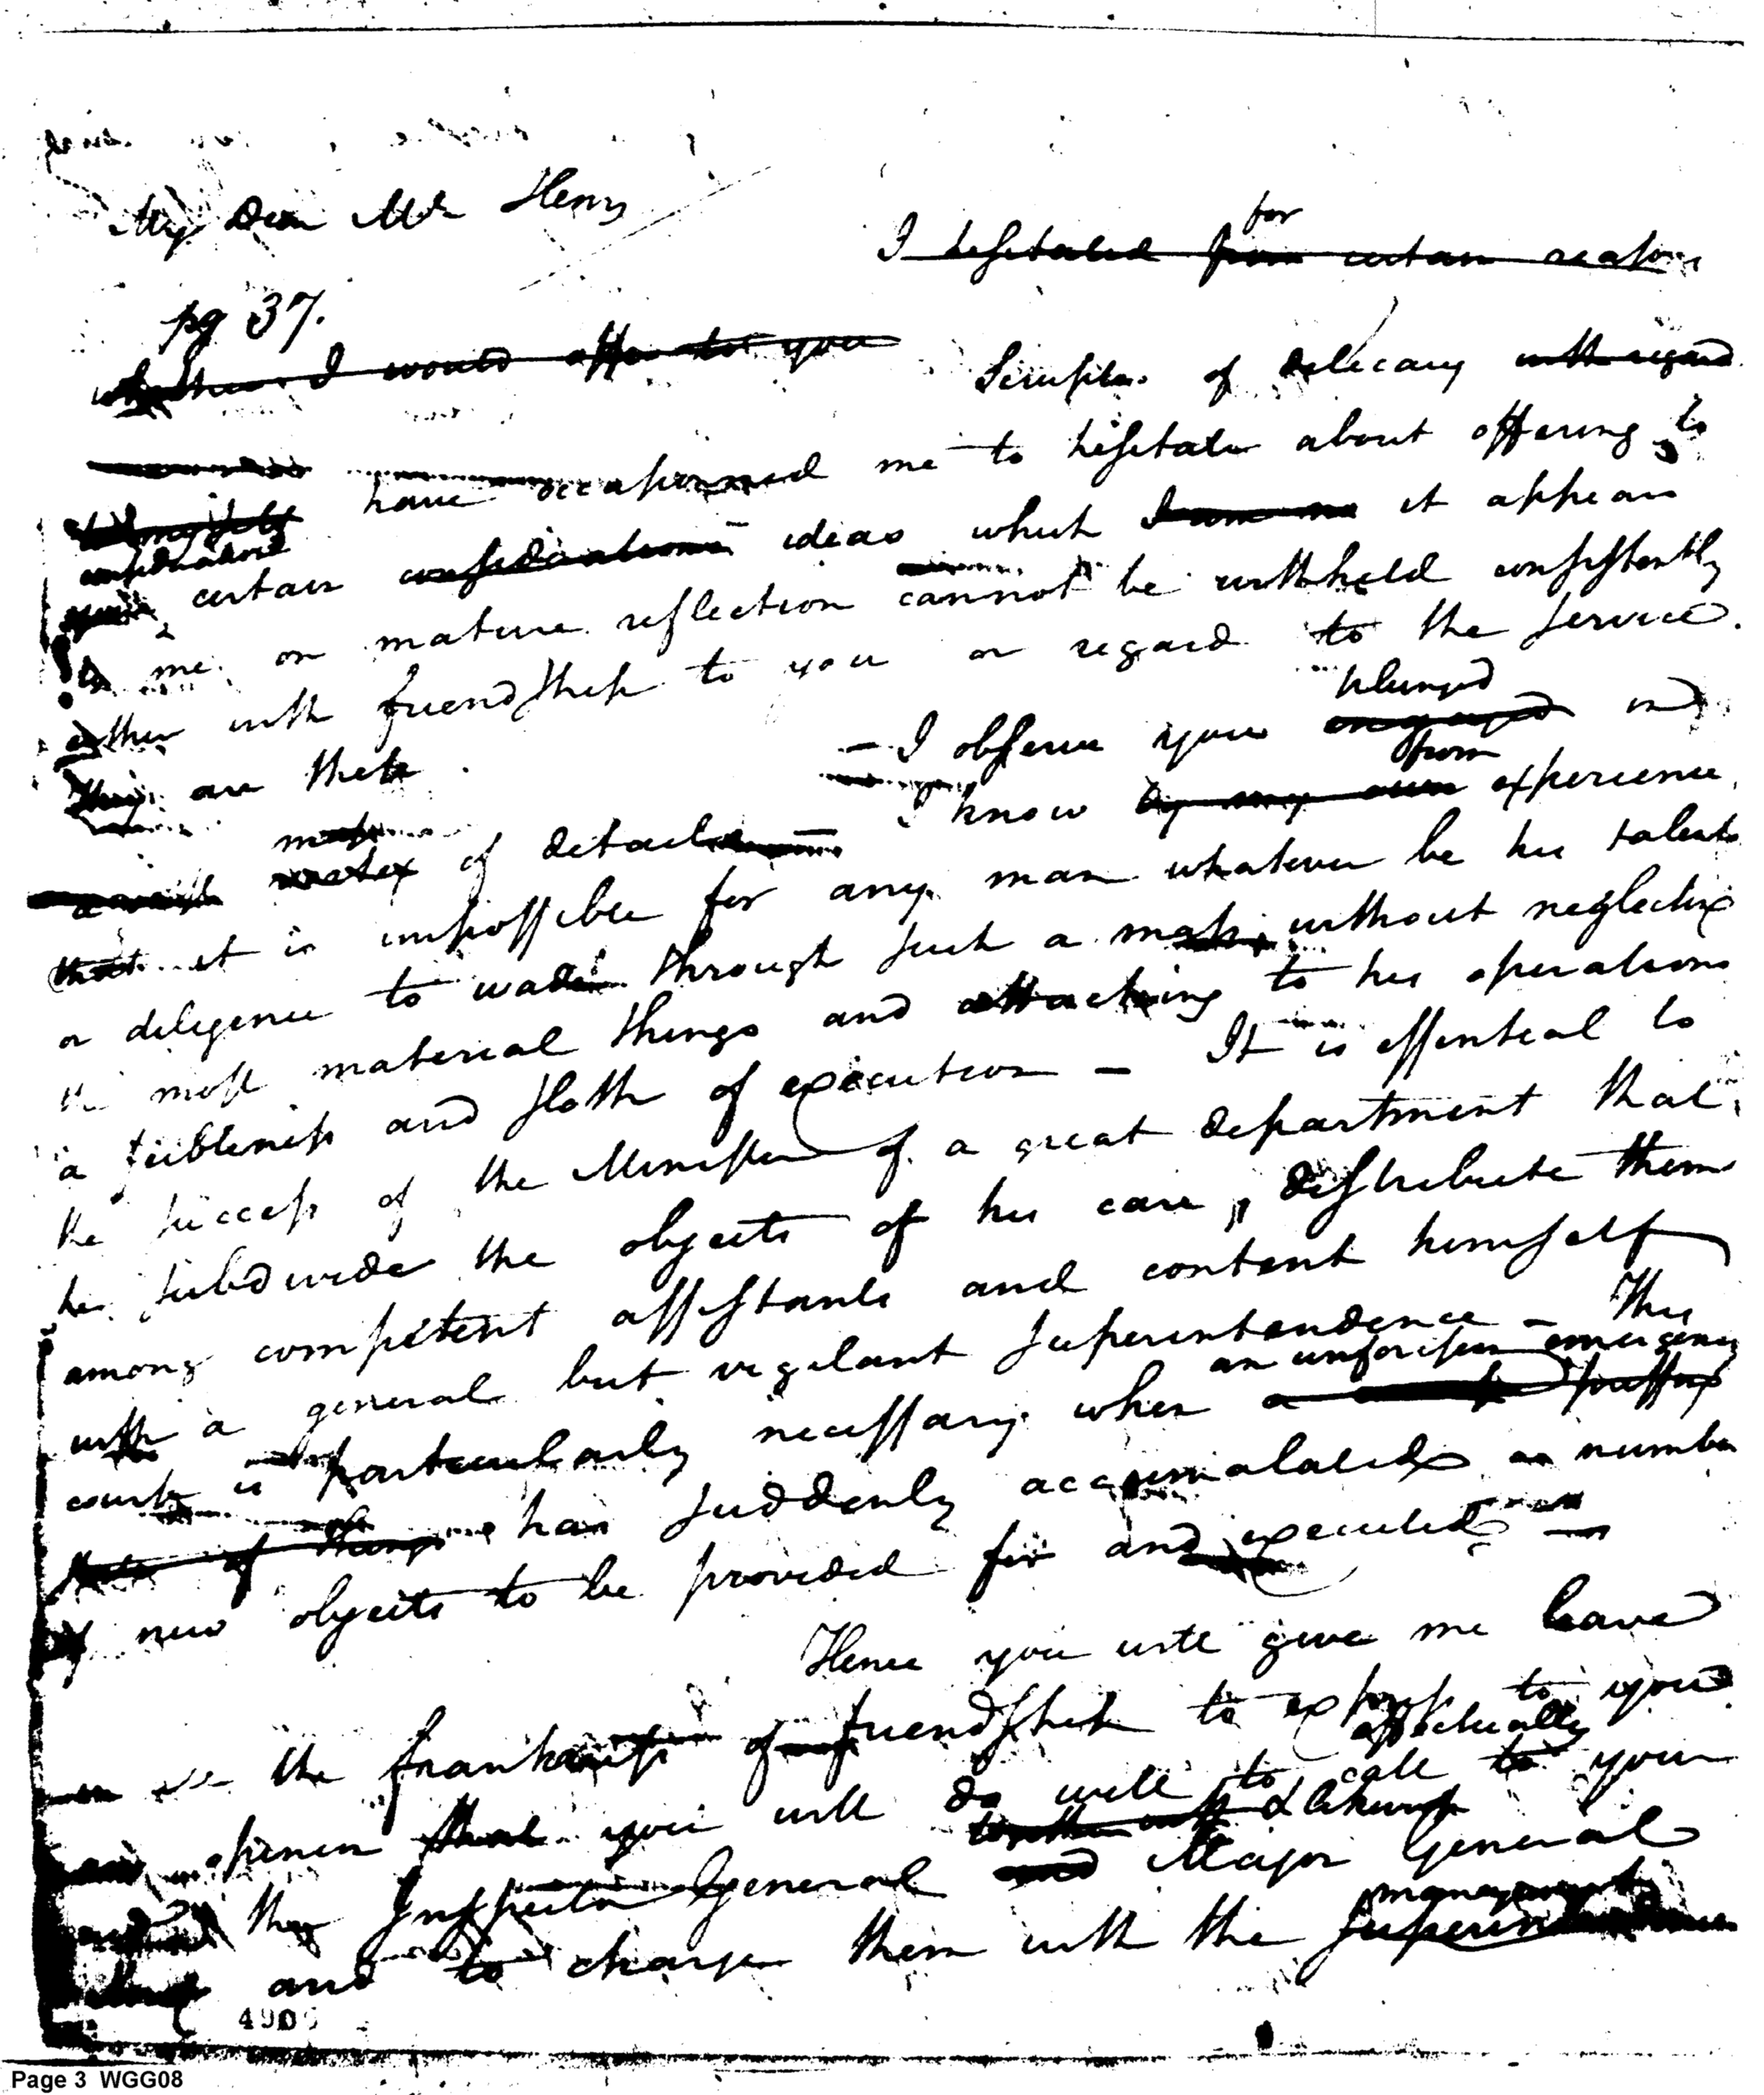 My Dear Mr Henry
for
I hesitated from certain reasons
pg 37.
whether I would offer to you
Scruples of delicacy with regard
have occasioned me to hesitate about offering to
considerations
you certain considerations ideas which I am it appears
to me on mature reflection cannot be withheld consistently
either with friendship to you or regard to the service.
They are these
plunged
– I observe you engaged in
from
I know by my own experience
mass
vortex of details
that it is impossible for any man whatever be his talents
or diligence to wade through such a mass, without neglecting
the most material things and attaching to his operations
a feebleness and sloth of execution – It is essential to
the success of the Minister of a great department that
he subdivide the objects of his care, distribute them
among competent assistants and content himself
with a general but vigilant superintendence – This
an unforeseen emergency
course is particularly necessary when a
state of things has suddenly accumulated a number
of new objects to be provided for and executed –
Hence you will give me leave
the frankness of friendship to express to you
effectually
opinion that you will do well to call to your
together with
aid the Inspector General and Major General
management
and to charge them with the
4906
Page 3 WGG08